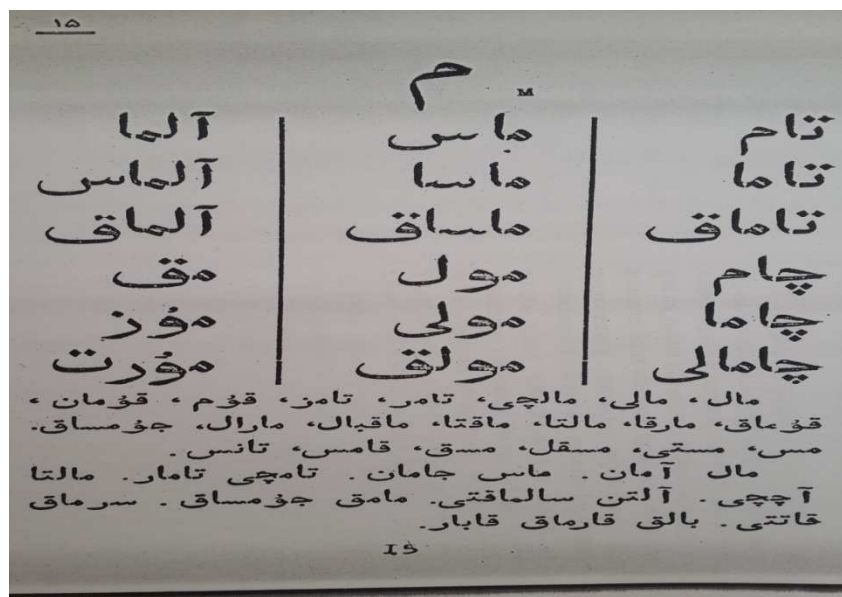 ۱۵
م
M
تام ماس آلما
تاما ماسا آلماس
تاماق ماساق آلماق
چام مول مق
چاما مولی مۇز
چامالی مولق مۇرت
مال، مالی، مالچی، تامر، تامز، قۇم، قۇمان،
قۇماق، مارقا، مالتا، ماقتا، ماقبال، مارال، جۇمساق.
مس، مستی، مسقل، مسق، قامس، تانس.
مال آمان. ماس جامان. تامچی تامار. مالتا
آچچی. آلتن سالماقتی. مامق جۇمساق. سرماق
قاتتی. بالق قارماق قابار.
15